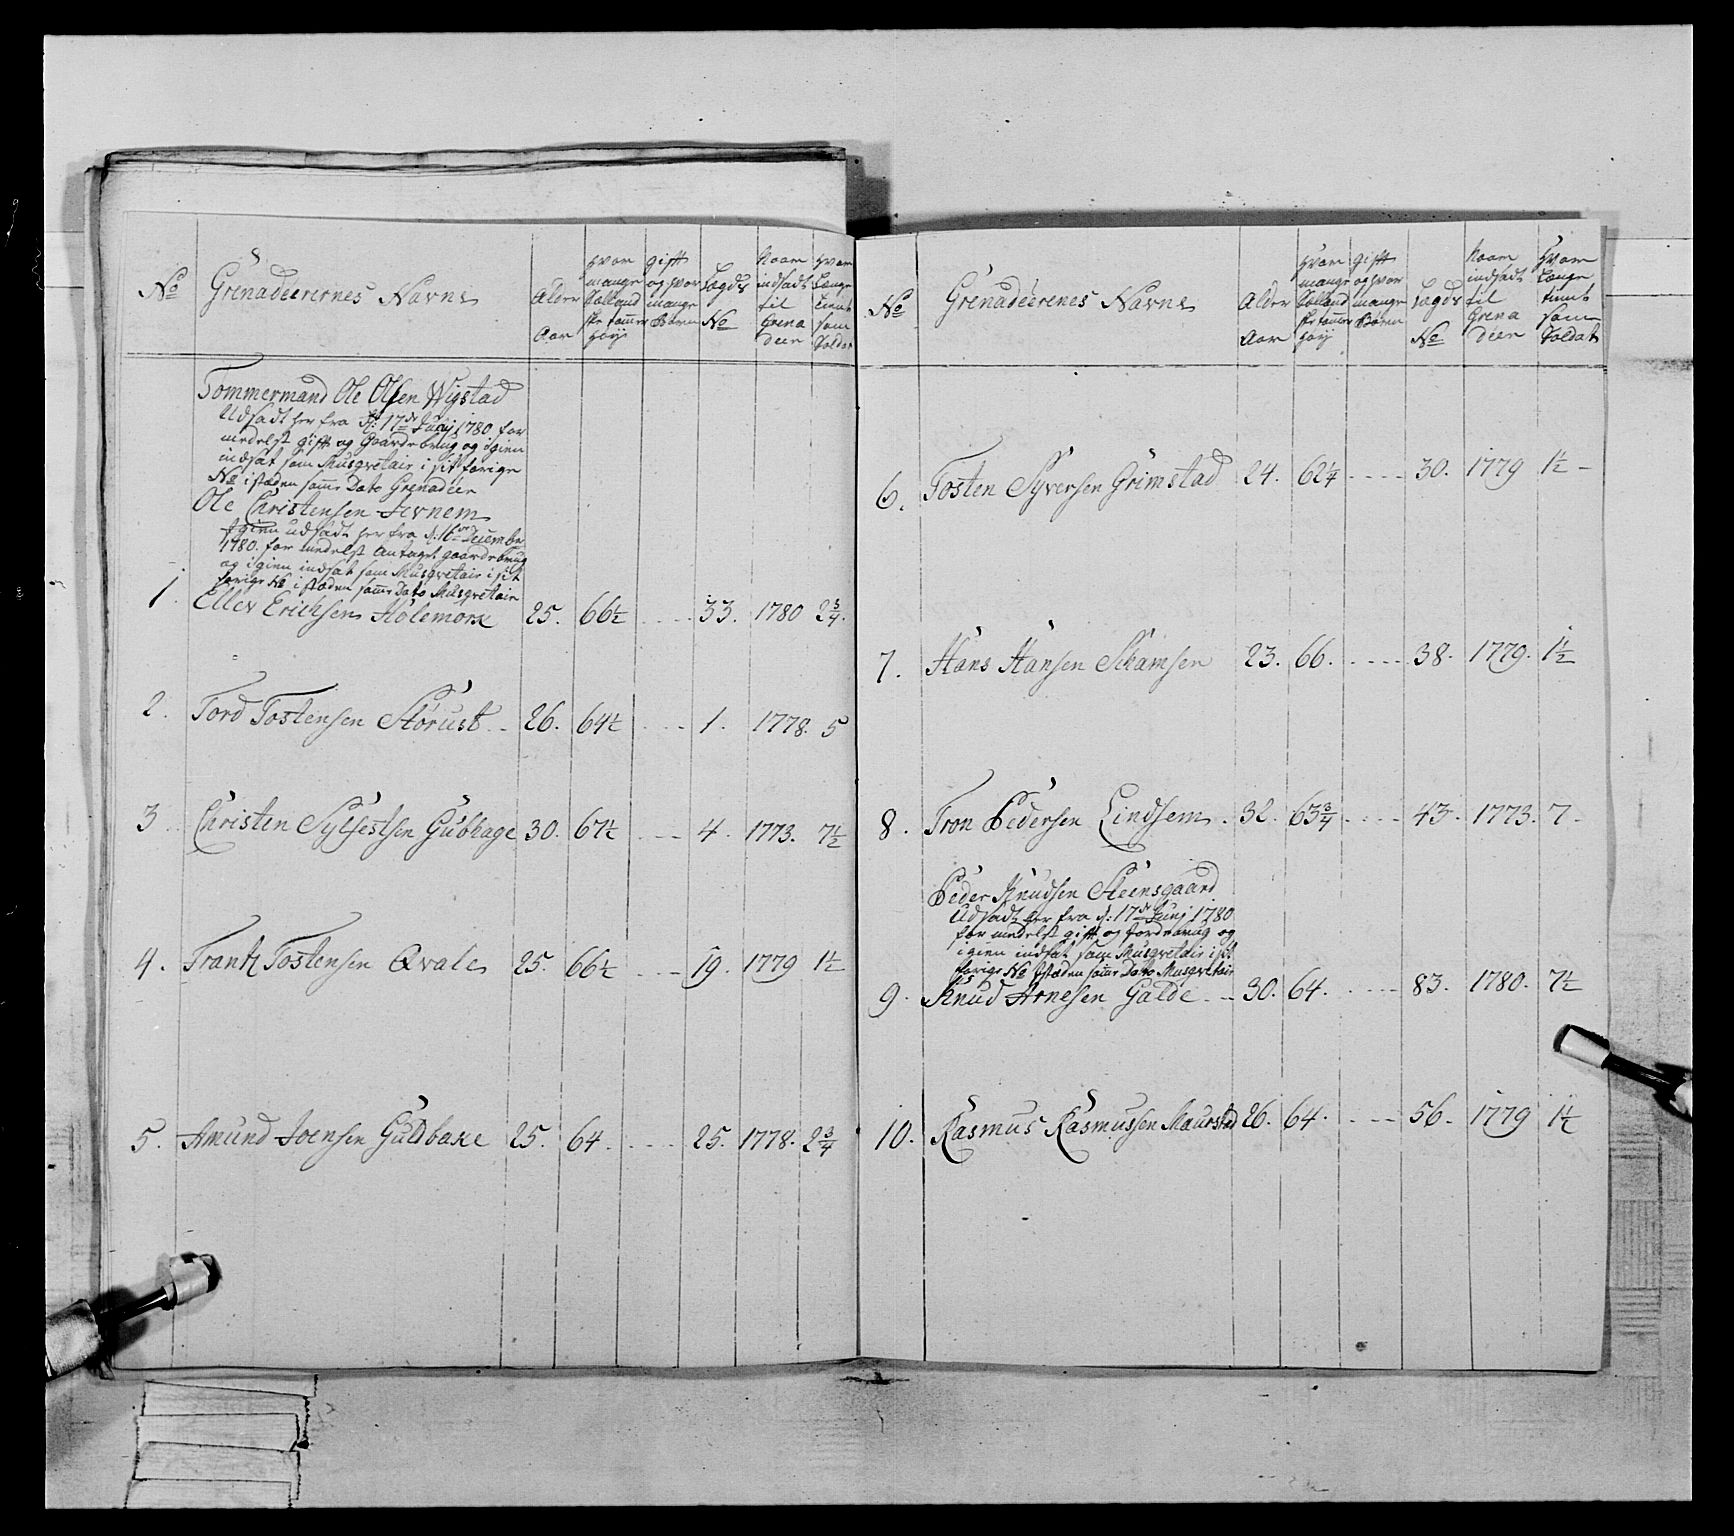 No Grenadeerernes Navne Alder Aar Hvor mange Sælland ske tommer Høÿ gift og hvor mange Børn Lægds No Naar indsadt til Grena deer Hvor Længe tient som Soldat
Tommermand Ole Olsen Wigstad
Udsadt her fra d: 17de Junj 1780 for
medelst gift og Gaardebrug og igien
indsat som Musqvetair i sit forige
No i stæden samme Dato Grenadeer
Ole Christensen Jevnem
igien udsadt her fra d: 16de December
1780. for medelst antaget gaardebrug
og igien indsat som Musqvetair i sit
forige No i stæden samme Dato Musqvetair
1. Ellev Erichsen Holemork 25. 66½ ---- 33. 1780 2¾.
2. Tord Tostensen Storust -- 26. 64½ ---- 1. 1778. 5
3. Christen Sylfestsen Gubhage 30. 67½ ---- 4. 1773. 7½
4. Trank Tostensen Qvale 25. 66½ ---- 19. 1779 1½
5. Amund Joensen Guldbake 25. 64. ---- 25. 1778. 2¾
No Grenadeerenes Navne Alder Aar Hvor mange Sælland ske tommer Høÿ gift og hvor mange Børn Lægds No Naar indsadt til Grena deer Hvor Længe tient som Soldat
6. Tosten Syversen Grimstad 24. 62¼ ---- 30. 1779 1½ -
7. Hans Hansen Skamsen 23. 66. ---- 38. 1779. 1½
8. Tron Pedersen Lindsem. 32. 63¾ ---- 43. 1773. 7-
Peder Knudsen Steensgaard
Udsadt her fra d: 17de Junj 1780
for medelst gift og Jordebrug og
igien indsat som Musqvetair i sit
forige No I stæden samme Dato Musqvetair
9. Knud Arnesen Galde -- 30. 64. ---- 83. 1780. 7½
10. Rasmus Rasmussen Maurstad 26. 64. ---- 56. 1779 1½